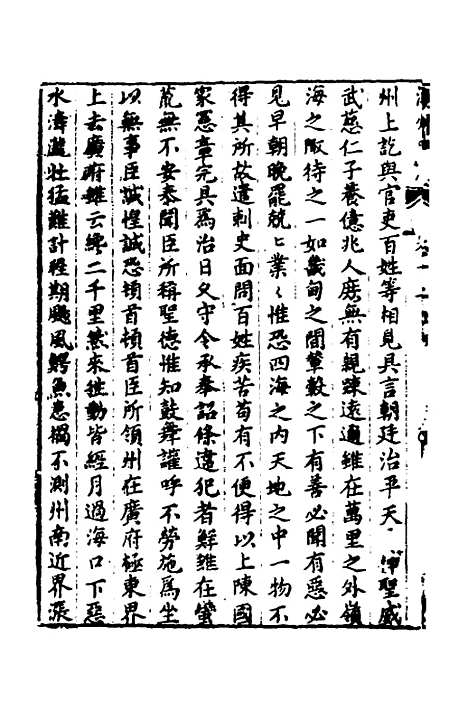 州上訖與官吏百姓等相見具言朝廷治平天 神聖威
武慈仁子養億兆人庶無有親踈遠邇雖在萬里之外嶺
海之陬待之一如畿甸之間輦轂之下有善必聞有惡必
見早朝晚罷兢〻業〻惟恐四海之内天地之中一物不
得其所故遣刺史面問百姓疾苦苟有不便得以上陳國
家憲章完具為治日乆守令承奉詔條違犯者鮮雖在蠻
荒無不安泰聞臣所稱聖德惟知鼓舞讙呼不勞施為坐
以無事臣誠惶誠恐頓首頓首臣所領州在廣府極東界
上去廣府雖云纔二千里然來徃動皆經月過海口下惡
水濤瀧壯猛難計程期颶風鰐魚患禍不測州南近界漲